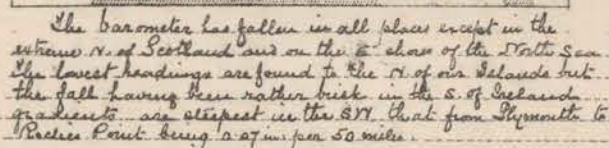 The barometer has fallen in all places except in the
extreme N. of Scotland and on the E shores of the North Sea.
The lowest readings are found to the N of our Islands but
the fall having been rather brisk in the S. of Ireland
gradients are steepest in the SW. that from Plymouth to
Roches Point being 0.07 in. per 50 miles.